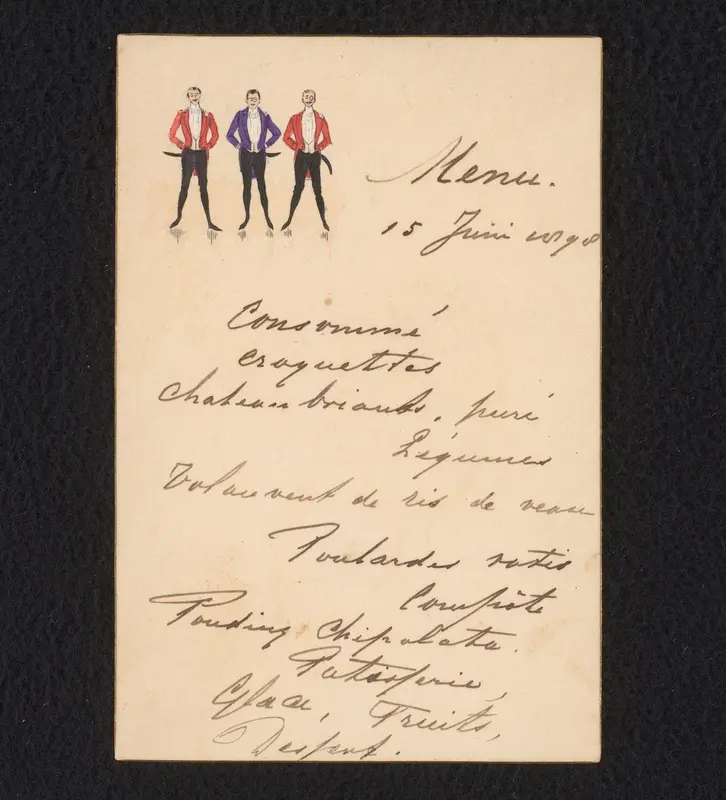 Menu.
15 Juni 1898
Consommé
croquettes
chateaubriants, puré
Légumes
Vol au vent de ris de veau
Poulardes rotis
Compôte
Pouding Chipolata.
Patisserie,
Glace, Fruits,
Dessert.